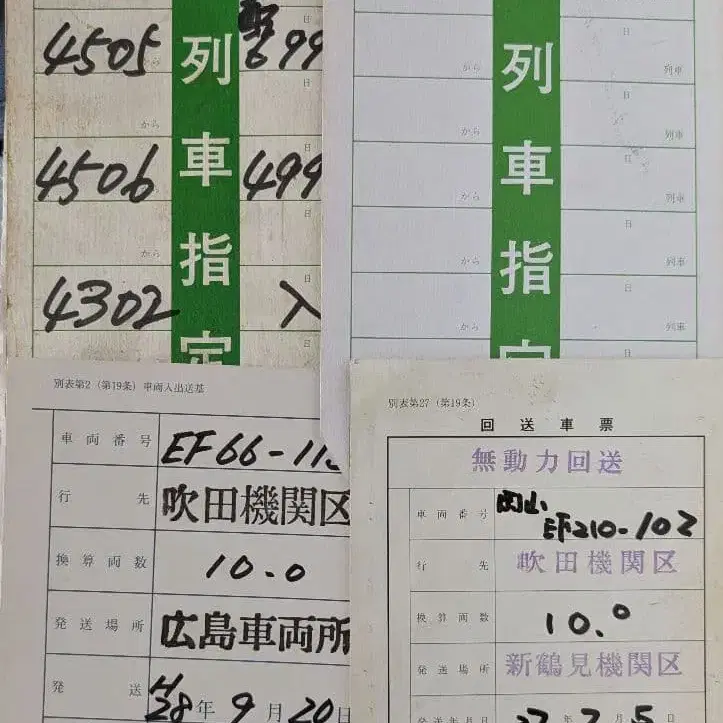 日
4505
699
列車指定
から
日
から
日
4506
499
から
日
4302
入
日
から
列車
日
から
列車
日
から
列車
日
から
列車
日
から
列車
列車指定
別表第2（第19条）車両入出送基
車両番号
EF66-11
行先
吹田機関区
換算両数
10.0
発送場所
広島車両所
発送
H28年9月20日
別表第27（第19条）
回送車票
無動力回送
車両番号
岡山
EF210-102
行先
吹田機関区
換算両数
10.0
発送場所
新鶴見機関区
発送年月日